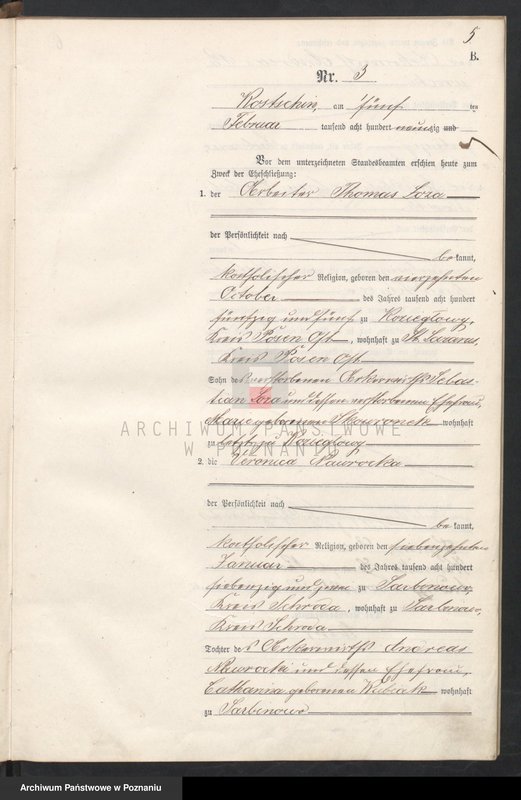 5
B.
Nr. 3
Kostschin, am fünf ten
Februar tausend acht hundert neunzig und
Vor dem unterzeichneten Standesbeamten erschien heute zum
Zweck der Eheschließung:
1. der Arbeiter Thomas Loza
der Persönlichkeit nach
bekannt,
katholischer Religion, geboren den vierzehnten
October des Jahres tausend acht hundert
fünfzig und fünf zu
Kreis Posen Ost, wohnhaft zu St. Lazarus,
Kreis Posen Ost
Sohn des verstorbenen Ackerwirths Sebas-
tian Loza und dessen verstorbenen Ehefrau,
Marie geborenen wohnhaft
zu letzt zu
2. die Veronica Nawrocka
der Persönlichkeit nach
bekannt,
katholischer Religion, geboren den siebenzehnten
Januar des Jahres tausend acht hundert
siebenzig und zwei zu Sarbinowo,
Kreis Schroda, wohnhaft zu Sarbinowo,
Kreis Schroda
Tochter des Ackerwirths Andreas
Nawrocki und dessen Ehefrau,
Catharina geborenen wohnhaft
zu Sarbinowo
ARCHIWUM PAŃSTWOWE
W POZNANIU
Archiwum Państwowe w Poznaniu